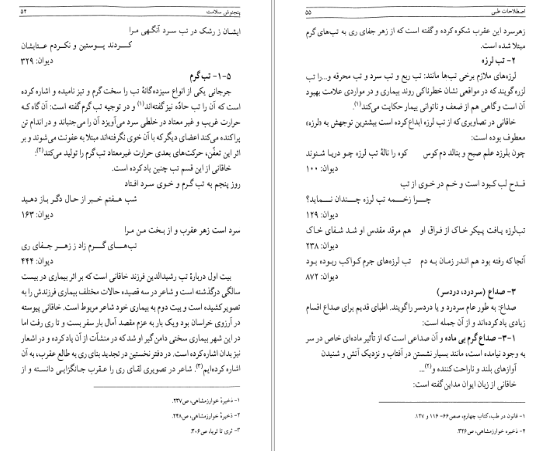 پنجنوش سلامت ۵۴
ایشان ز رشک در تب سرد آنگهی مرا
کردند پوستین و نکردم عتابشان
دیوان: ۳۲۹
۵-۱- تب گرم
جرجانی یکی از انواع سیزده‌گانهٔ تب را سخت گرم و تیز نامیده و اشاره کرده
است که آن را تب حادّه نیز گفته‌اند(۱) و در توجیه تب گرم گفته است: آن گاه که
حرارت غریب و غیر معتاد در خلطی سرد می‌آویزد آن را می‌جنباند و در اندام تن
پراکنده می‌کند اعضای دیگر که با آن خوی نگرفته‌اند مبتلا به عفونت می‌شوند و بر
اثر این تعفّن، حرکت‌های بعدی حرارت غیرمعتاد تب گرم را تولید می‌کند(۲).
خاقانی از این قسم تب چنین یاد کرده است.
روز پنجم به تب گرم و خوی سرد افتاد
شب هفتم خبر از حال دگر باز دهید
دیوان: ۱۶۳
سرد است زهر عقرب و از بخت من مرا
تب‌های گرم زاد ز زهر جفای ری
دیوان: ۴۴۴
بیت اول دربارهٔ تب رشیدالدین فرزند خاقانی است که بر اثر بیماری در بیست
سالگی درگذشته است و شاعر در سه قصیده حالات مختلف بیماری فرزندش را به
تصویر کشیده است و بیت دوم به بیماری خود شاعر مربوط است. خاقانی پیوسته
در آرزوی خراسان بود و یک بار به عزم مقصد آمال بار سفر بست و تا ری رفت اما
در این شهر بیماری سختی دامن‌گیر او شد که در منشآت از آن یاد کرده و در اشعار
نیز بدان اشاره کرده است. در دفتر نخستین در تجدید بنای ری به طالع عقرب، به آن
اشاره کرده‌ایم(۳) شاعر در تصویری لقای ری را عقرب جانگزایی دانسته و از
۱- ذخیرهٔ خوارزمشاهی، ص۲۳۷.
۲- ذخیرهٔ خوارزمشاهی، ص۲۲۸.
۳- ثری تا ثریا، ص۳۰۶.
اصطلاحات طبی ۵۵
زهر سرد این عقرب شکوه کرده و گفته است که از زهر جفای ری به تب‌های گرم
مبتلا شده است.
۲- تب لرزه
لرزه‌های ملازم برخی تب‌ها مانند: تب ربع و تب سرد و تب محرقه و... را تب
لرزه گویند که در مواقعی نشان خطرناکی روند بیماری و در مواردی علامت بهبود
آن است و گاهی هم از ضعف و ناتوانی بیمار حکایت می‌کند(۱).
خاقانی در تصاویری که از تب لرزه ابداع کرده است بیشترین توجهش به «لرزه»
معطوف بوده است:
چون بلرزد علم صبح و بنالد دم کوس کوه را نالهٔ تب لرزه چو دریا شنوند
دیوان: ۱۰۰
قدح لب کبود است و خم در خوی از تب
چرا زخمه تب لرزه چندان نماید؟
دیوان: ۱۲۹
تب‌لرزه یافت پیکر خاک از فراق او هم مرقد مقدس او شد شفای خاک
دیوان: ۲۳۸
آنجا که رفته بود هم اندر زمان به دم تب لرزه‌های جرم کواکب ربوده بود
دیوان: ۸۷۲
۳- صداع (سردرد، دردسر)
صداع: به طور عام سردرد و یا دردسر را گویند. اطبای قدیم برای صداع اقسام
زیادی یاد کرده‌اند و از آن جمله است:
۱-۳- صداع گرم بی ماده و آن صداعی است که از تأثیر ماده‌ای خاص در سر
به وجود نیامده است، مانند بسیار نشستن در آفتاب و نزدیک آتش و شنیدن
آوازهای بلند و ناراحت کننده و(۲)...
خاقانی از زبان ایوان مداین گفته است:
۱- قانون در طب، کتاب چهارم، صص۶۴- ۱۱۴ و ۱۲۷.
۲- ذخیره خوارزمشاهی، ص۳۲۶.